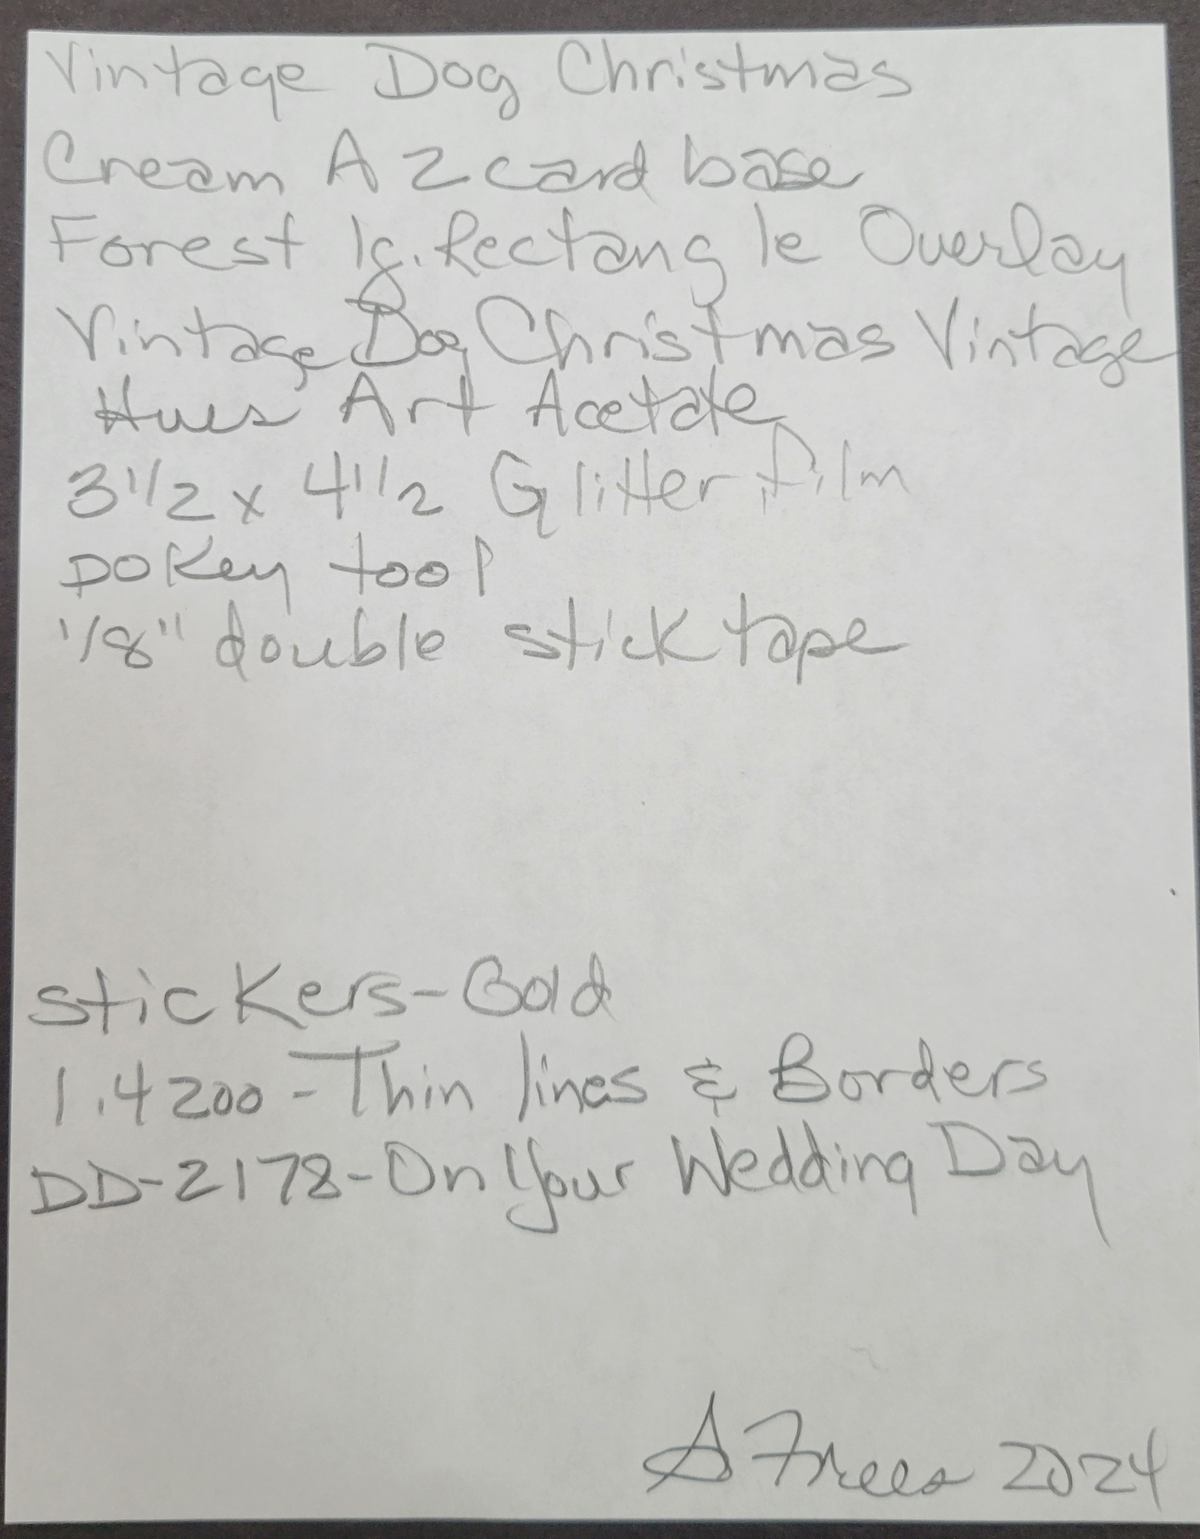 Vintage Dog Christmas
Cream A2 card base
Forest lg. Rectangle Overlay
Vintage Dog Christmas Vintage
Hues Art Acetate
3 1/2 x 4 1/2 Glitter film
pokey tool
1/8" double stick tape
stickers-Gold
1.4200-Thin lines & Borders
DD-2178-On Your Wedding Day
A Frees 2024